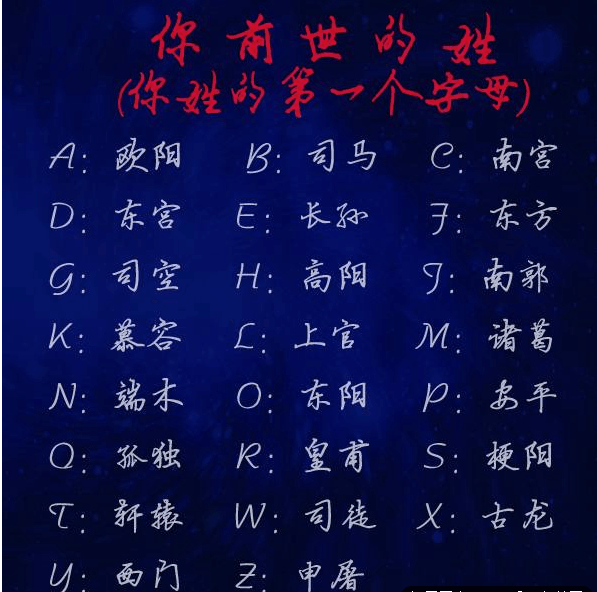 你前世的姓
(你姓的第一个字母)
A: 欧阳 B: 司马 C: 南宫
D: 东宫 E: 长孙 F: 东方
G: 司空 H: 高阳 J: 南郭
K: 慕容 L: 上官 M: 诸葛
N: 端木 O: 东阳 P: 安平
Q: 孤独 R: 皇甫 S: 梗阳
T: 轩辕 W: 司徒 X: 古龙
Y: 西门 Z: 申屠